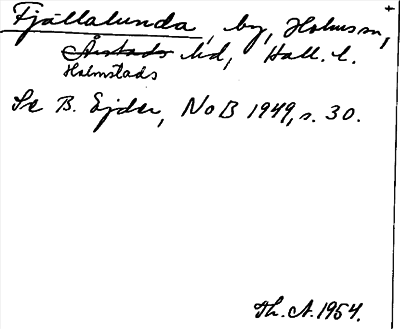 Fjällalunda, by, Holms sn,
Årstads hd, Hall. l.
Halmstads
Se B. Ejder, NoB 1949, s. 30.
Th. A. 1954.